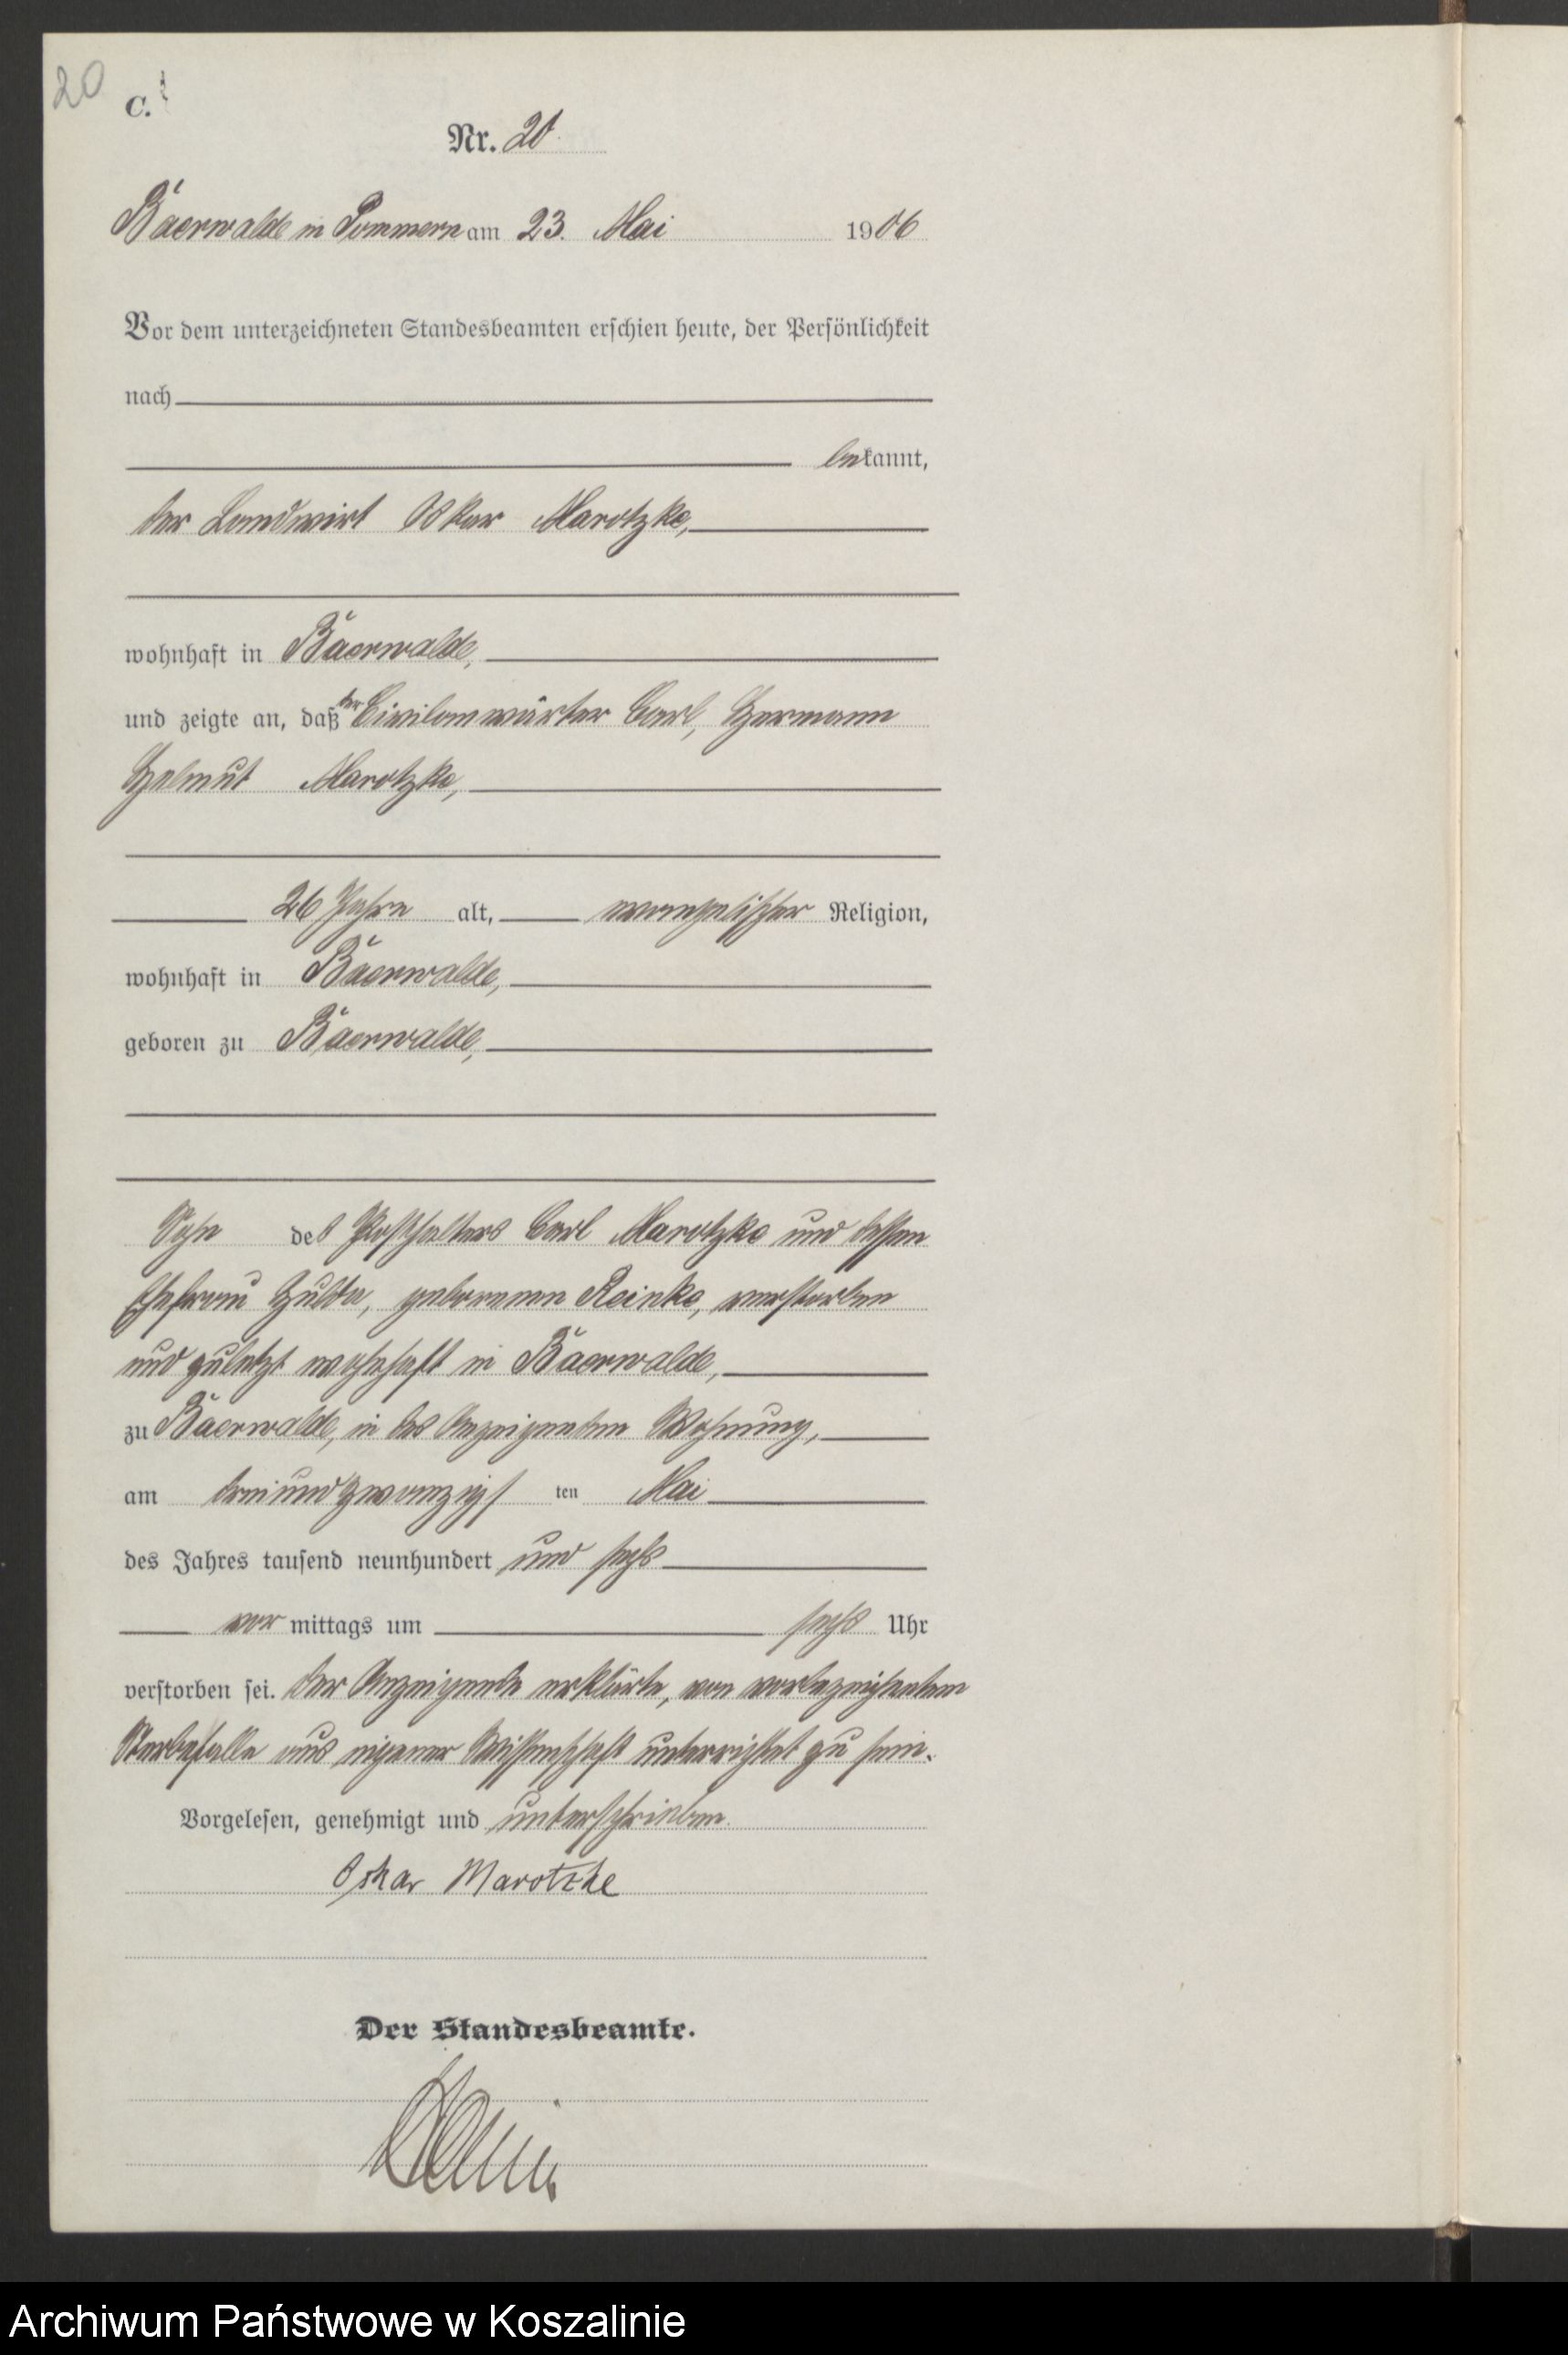 20
C.
Nr. 20
Baerwalde in Pommern am 23. Mai 1906
Vor dem unterzeichneten Standesbeamten erschien heute, der Persönlichkeit
nach
bekannt,
der Landwirt Oskar Marotzke,
wohnhaft in Baerwalde,
und zeigte an, daß der Civilanwärter Carl, Hermann
Helmut Marotzke,
26 Jahre alt, evangelischer Religion,
wohnhaft in Baerwalde,
geboren zu Baerwalde,
Sohn des Posthalters Carl Marotzke und dessen
Ehefrau Hulda, geborenen Reinke, verstorben
und zuletzt wohnhaft in Baerwalde,
zu Baerwalde, in des Anzeigenden Wohnung,
am dreiundzwanzigs ten Mai
des Jahres tausend neunhundert und sechs
vor mittags um sechs Uhr
verstorben sei. Der Anzeigende erklärte, von vorbezeichnetem
Sterbefalle aus eigener Wissenschaft unterrichtet zu sein.
Vorgelesen, genehmigt und unterschrieben.
Oskar Marotzke
Der Standesbeamte.
Archiwum Państwowe w Koszalinie